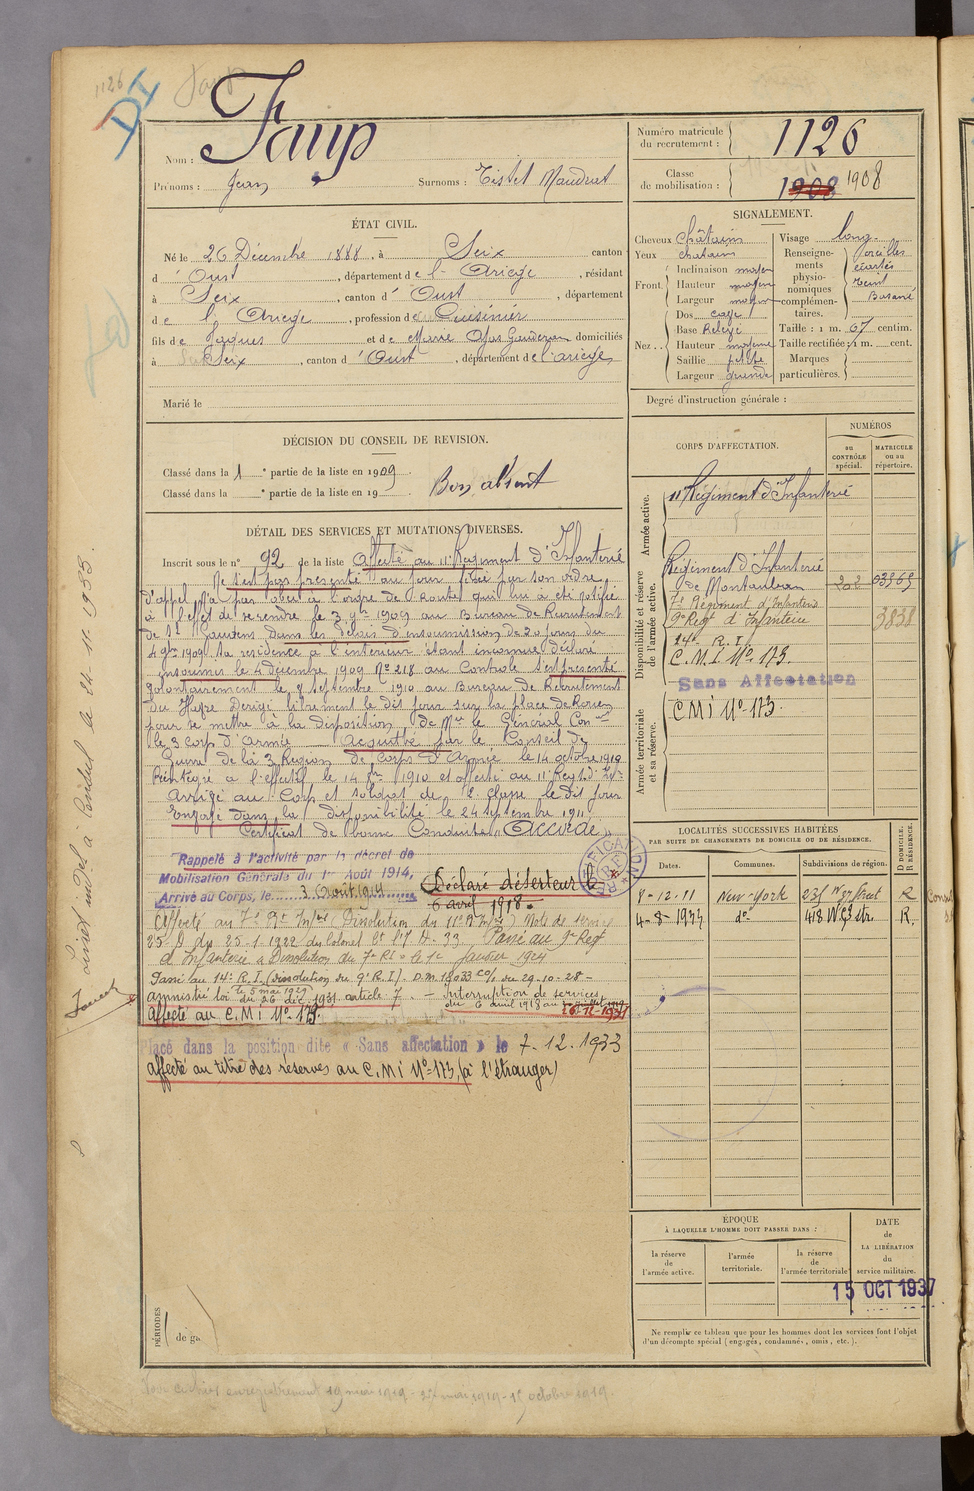 1126
DI
Faup
Nom : Faup
Prénoms : Jean Surnoms : Tistet Maudrat
ÉTAT CIVIL.
Né le 26 Décembre 1888, à Seix canton
d'Oust, département de l'Ariège, résidant
à Seix, canton d'Oust, département
de l'Ariège, profession de Cuisinier
fils de Jacques et de Marie domiciliés
à Seix, canton d'Oust, département de l'ariège
Marié le
DÉCISION DU CONSEIL DE REVISION.
Classé dans la 1e partie de la liste en 1909. Bon absent
Classé dans la e partie de la liste en 19 .
DÉTAIL DES SERVICES ET MUTATIONS DIVERSES.
Inscrit sous le n° 92 de la liste affecté au 11e Régiment d'Infanterie
Ne s'est pas présenté au jour fixé par son ordre
d'appel N'a pas obéi à l'ordre de Route qui lui a été notifié
à l'effet de se rendre le 3 9bre 1909 au Bureau de Recrutement
de St Gaudens Dans les délais d'insoumission de 30 jours du
4 9bre 1909 Sa résidence à l'intérieur étant inconnue déclaré
insoumis le 4 décembre 1909 No 218 au Controle S'est présenté
volontairement le 9 septembre 1910 au Bureau de Recrutement
du Havre Dirigé librement le dit jour sur la place de Rouen
pour se mettre à la disposition de Mr le Général Comt
le 3 corp d'Armée — Acquitté par le Conseil de
Guerre de la 3 Région de Corps d'Armée le 14 octobre 1910
Réintégré à l'effectif le 14 8bre 1910 et affecté au 11e Regt d'Infie
Arrivé au Corp et soldat de 2e classe le dit jour
Congé dans la disponibilité le 24 septembre 1911
Certificat de bonne Conduite "Accordé"
Rappelé à l'activité par le décret de
Mobilisation Générale du 1er Août 1914,
Arrivé au Corps, le 3 Août 1914
Déclaré déserteur le
6 avril 1918.
Affecté au 7e Rt Infie (Dissolution du 11e R Infie) Note de service
25. D du 25-1-1922 du Colonel Ct l'I D. 33 Passé au 9e Regt
d'Infanterie à Dissolution du 7e RI le 1er Janvier 1924
Passé au 14e R.I. (dissolution du 9e R.I). D.M. 18033 du 29-10-28 -
le 5 mai 1929
amnistié loi du 26 déc 1931 article 7. — Interruption de services
du 6 avril 1918 au
26-12-1931
affecté au C.M.I No 173.
Placé dans la position dite « Sans affectation » le 7.12.1933
affecté au titre des réserves au C.M.I No 173 (à l'étranger)
PÉRIODES
de ga
Numéro matricule du recrutement : 1126
Classe de mobilisation : 1908 1908
SIGNALEMENT.
Cheveux Châtains
Yeux chatains
Front.
Inclinaison moyen
Hauteur moyen
Largeur moyen
Nez..
Dos cave
Base Relevé
Hauteur moyenne
Saillie petite
Largeur grande
Visage long.
Renseignements physionomiques complémentaires. Oreilles écartés teint Basané
Taille : 1 m. 67 centim.
Taille rectifiée : 1 m. cent.
Marques particulières.
Degré d'instruction générale :
CORPS D'AFFECTATION.
NUMÉROS
au CONTRÔLE spécial.
MATRICULE ou au répertoire.
Armée active.
11e Régiment d'Infanterie
Disponibilité et réserve de l'armée active.
Régiment d'Infanterie
de Montauban 202 03969
7e Régiment d'Infanterie
9e Regt d'Infanterie 3838
14e R.I.
C.M.I. No 173.
Sans Affectation
Armée territoriale et sa réserve.
CMI No 173.
LOCALITÉS SUCCESSIVES HABITÉES
PAR SUITE DE CHANGEMENTS DE DOMICILE OU DE RÉSIDENCE.
Dates. Communes. Subdivisions de région. D DOMICILE. R RÉSIDENCE.
8-12-11 New-York 235 W 37 Street R
4-8-1933 do 418 W 63 str. R.
ÉPOQUE
À LAQUELLE L'HOMME DOIT PASSER DANS :
la réserve de l'armée active.
l'armée territoriale.
la réserve de l'armée territoriale
DATE de LA LIBÉRATION du service militaire.
15 OCT 1937
Ne remplir ce tableau que pour les hommes dont les services font l'objet
d'un décompte spécial (engagés, condamnés, omis, etc.).
19 mai 1919 - 27 mai 1919 - 15 octobre 1919.